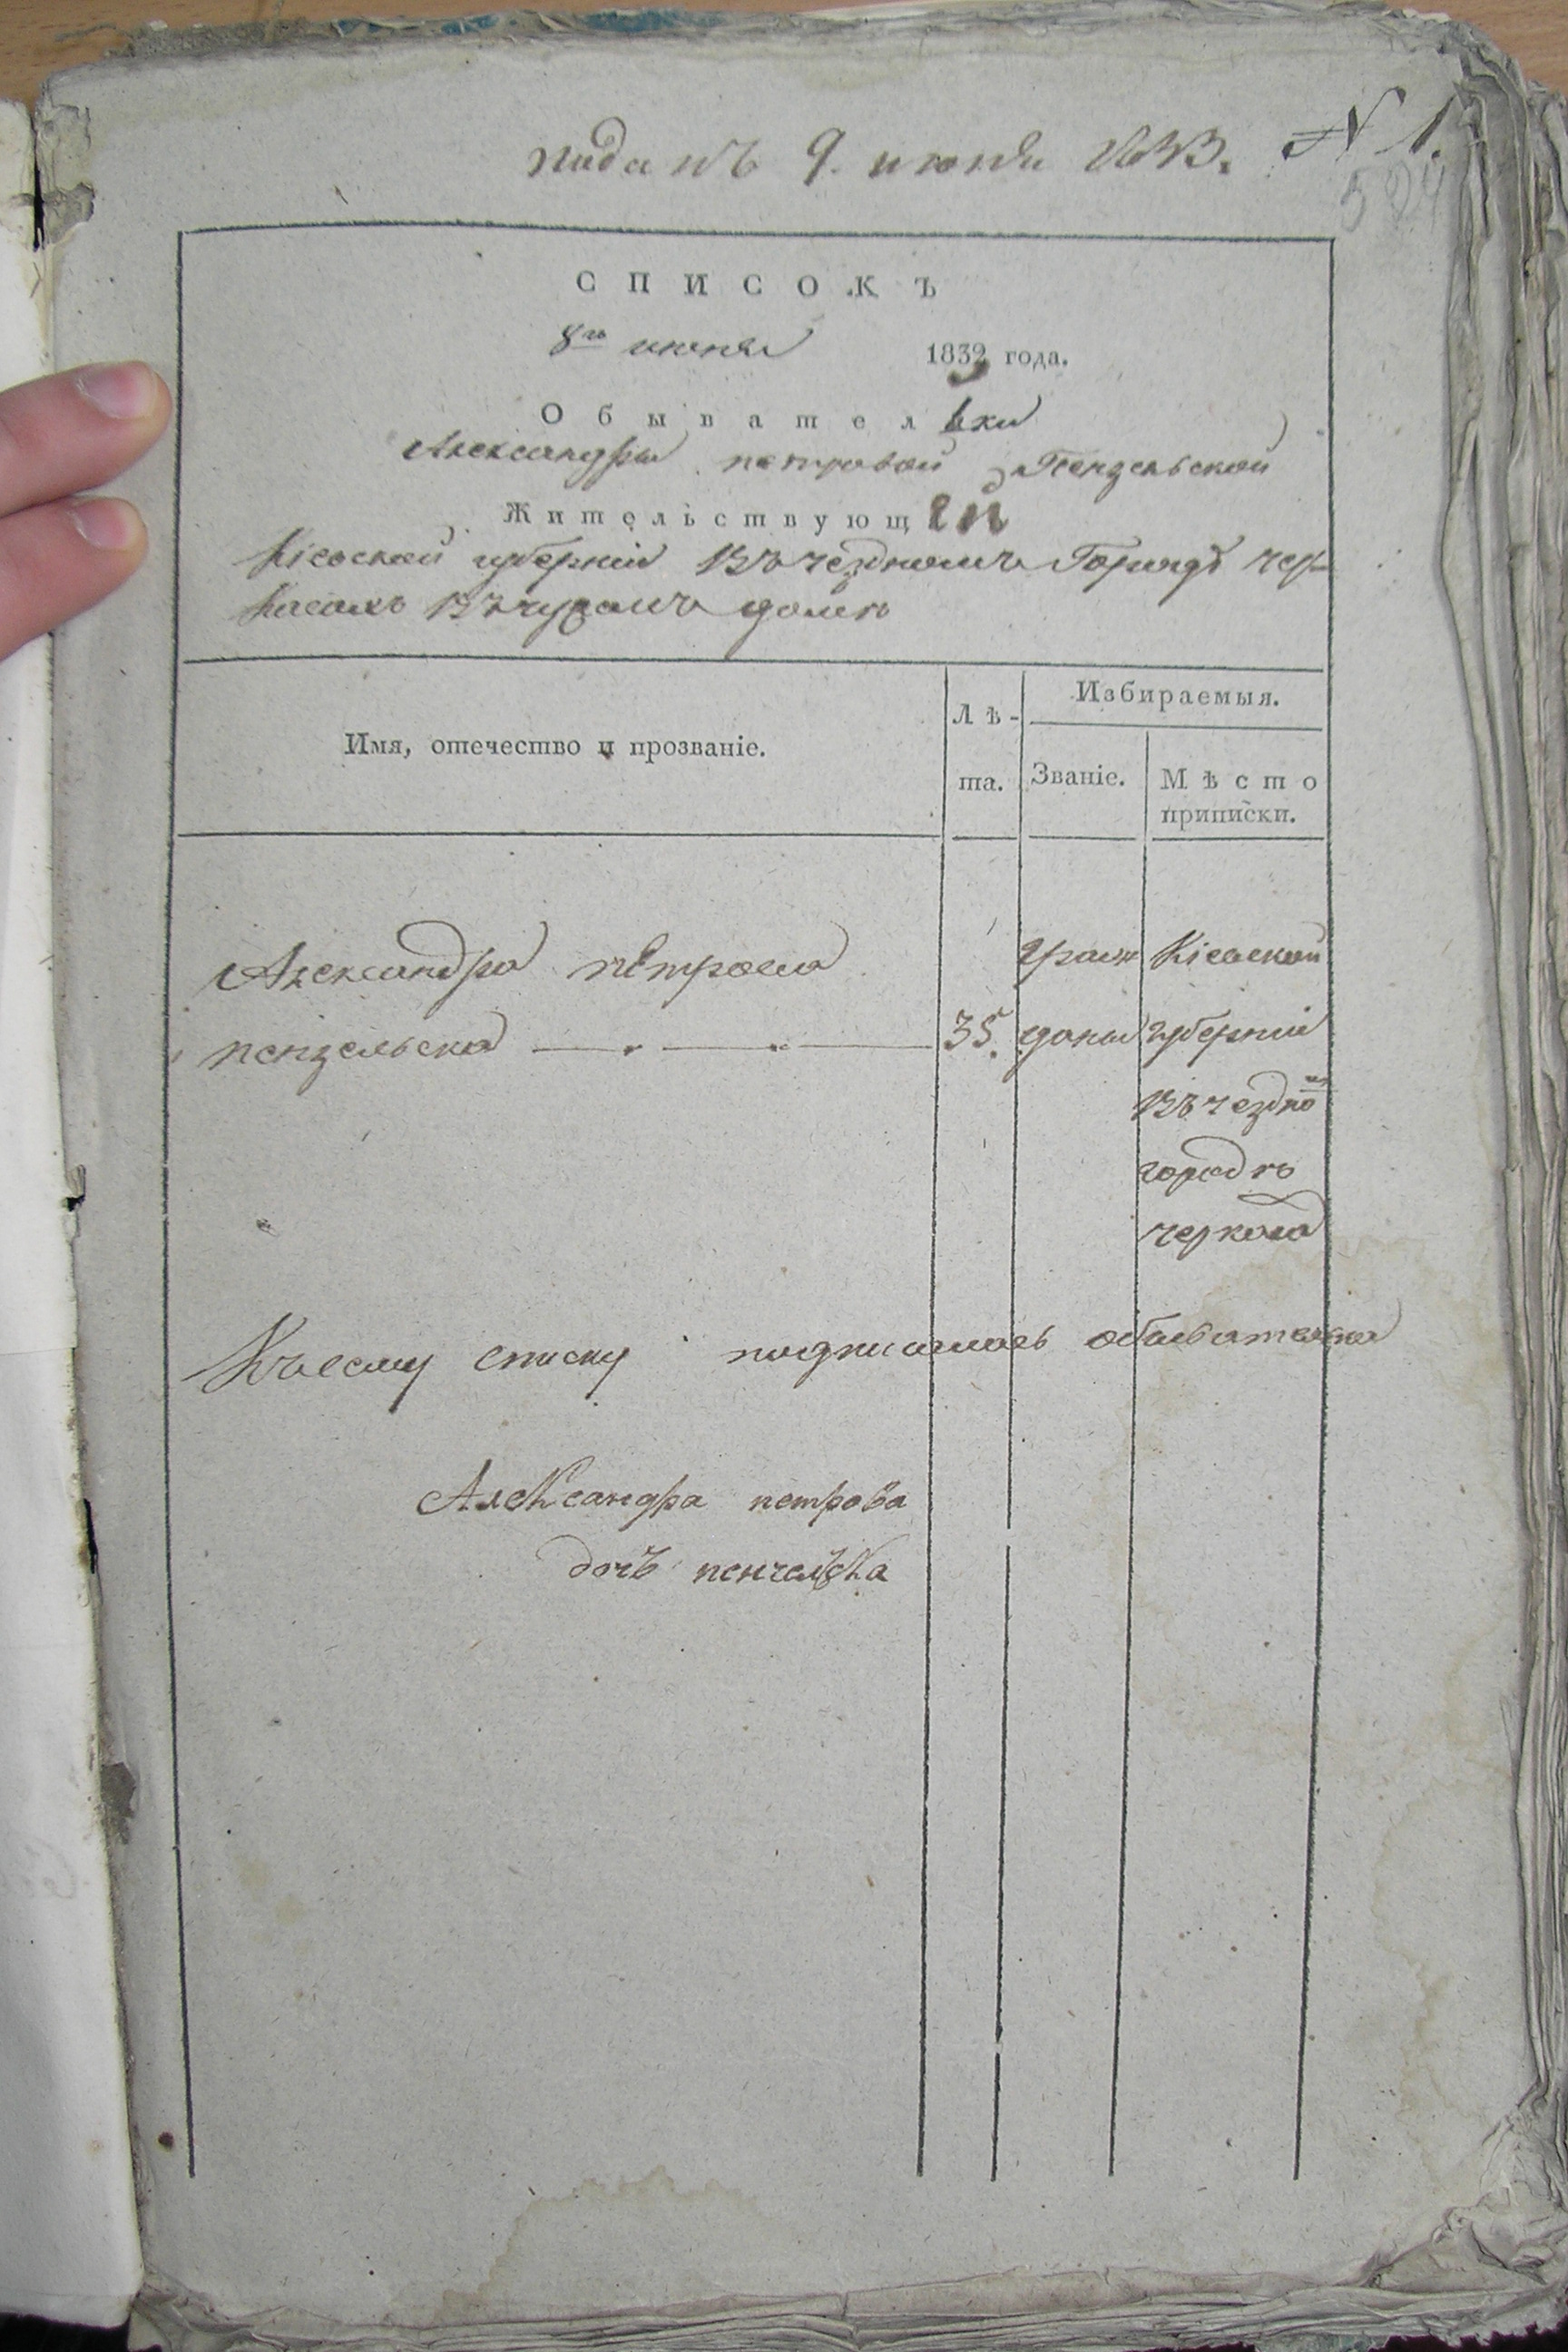 поданъ 9. июня 1833. N 1.
524
СПИСОКЪ
8го июня 1833 года.
Обывательки
Александры петровой Пензельской
Жительствующей
Кіевской губерніи Въуездномъ Городѣ чер-
касахъ Вчужомъ доме
Имя, отечество и прозваніе.
Лѣ-
та.
Избираемыя.
Званіе.
Мѣсто
приписки.
Александра петрова граж Кіевской
пензельска 35. данка губерніи
Въуездно
городѣ
черкаса
Ксему списку подписалась обывателька
Александра петрова
дочъ пенчелѣска